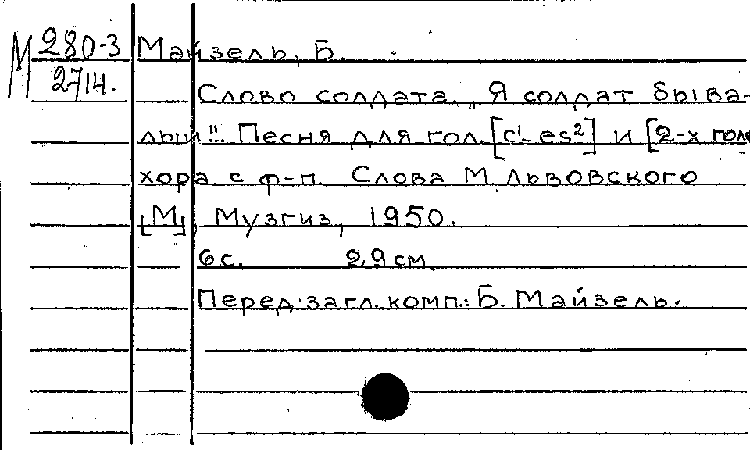 М 280-3
2714.
Майзель, Б.
Слово солдата. „Я солдат быва-
лый!" Песня для гол. [c¹-es²] и [2-х гол.]
хора с ф-п. Слова М. Львовского
[М], Музгиз, 1950.
6 с. 29 см
Перед загл. комп.: Б. Майзель.